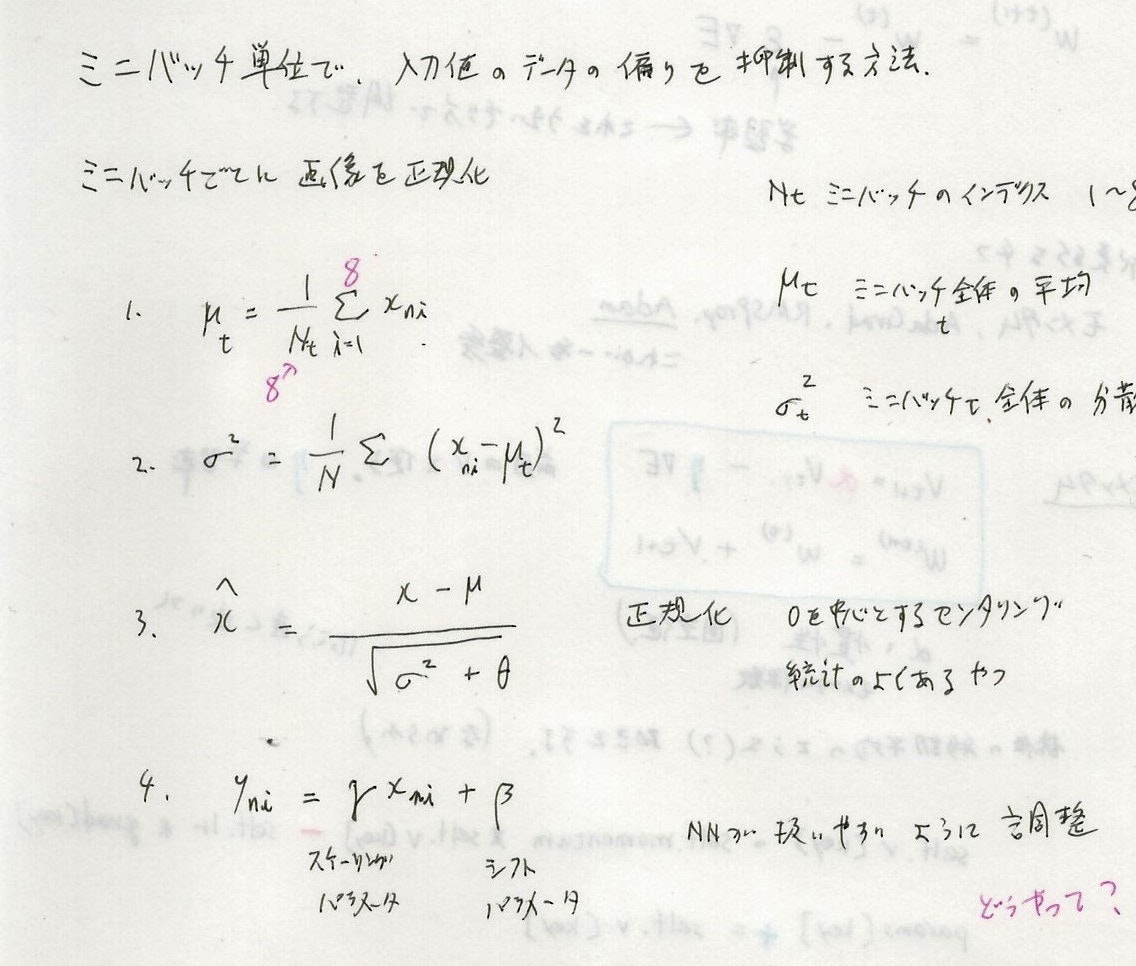 ミニバッチ単位で、入力値のデータの偏りを抑制する方法.
ミニバッチごとに 画像を正規化
Nt ミニバッチのインデクス 1〜8
1. μt = 1/Nt Σ i=1 8 xni
8↗
μt ミニバッチ全体の平均
t
σt² ミニバッチt 全体の分散
2. σ² = 1/N Σ (xni-μt)²
3. x̂ = (x - μ) / √(σ² + θ)
正規化 0を中心とするセンタリング
統計のよくあるやつ
4. yni = γ xni + β
スケーリング パラメータ
シフト パラメータ
NNが扱いやすいように調整
どうやって?